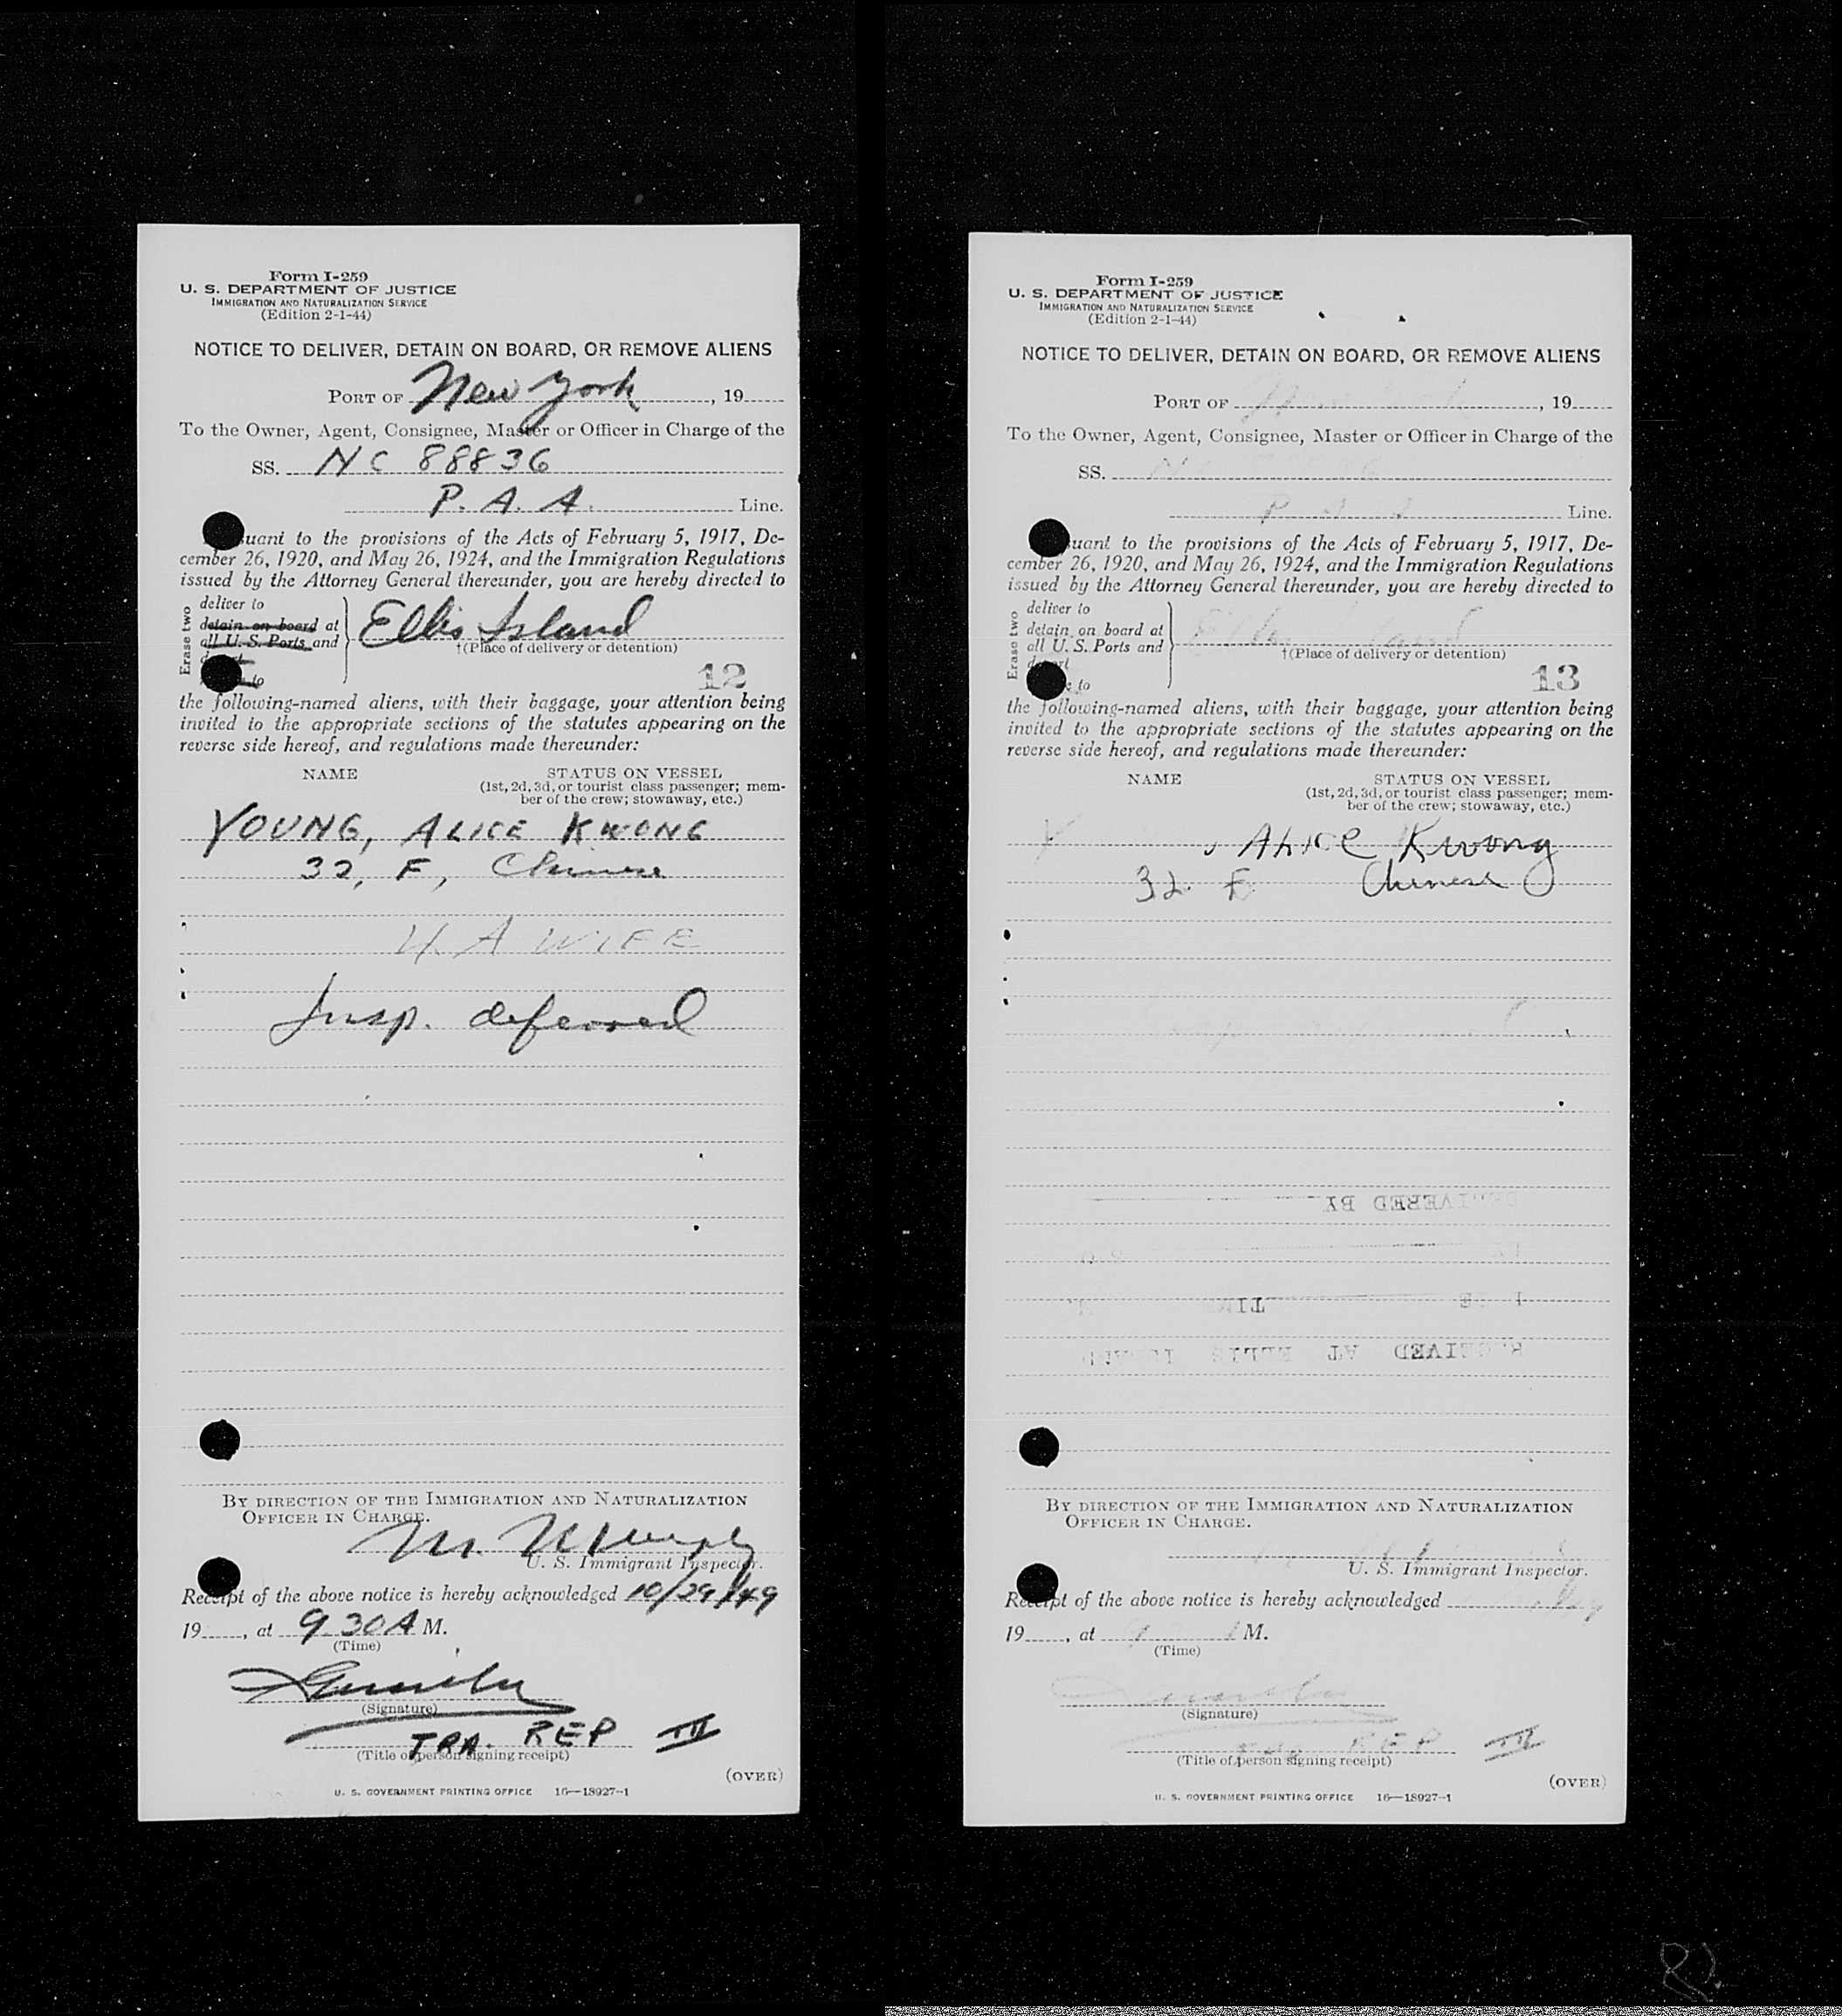 Form I-259
U. S. DEPARTMENT OF JUSTICE
IMMIGRATION AND NATURALIZATION SERVICE
(Edition 2-1-44)
NOTICE TO DELIVER, DETAIN ON BOARD, OR REMOVE ALIENS
PORT OF New York, 19
To the Owner, Agent, Consignee, Master or Officer in Charge of the
SS. NC 88836
P. A. A. Line.
uant to the provisions of the Acts of February 5, 1917, De-
cember 26, 1920, and May 26, 1924, and the Immigration Regulations
issued by the Attorney General thereunder, you are hereby directed to
Erase two
deliver to
detain on board at
all U. S. Ports and
to
Ellis Island
†(Place of delivery or detention)
12
the following-named aliens, with their baggage, your attention being
invited to the appropriate sections of the statutes appearing on the
reverse side hereof, and regulations made thereunder:
NAME
STATUS ON VESSEL
(1st, 2d, 3d, or tourist class passenger; mem-
ber of the crew; stowaway, etc.)
YOUNG, ALICE KWONG
32, F, Chinese
WIFE
Insp. deferred
BY DIRECTION OF THE IMMIGRATION AND NATURALIZATION
OFFICER IN CHARGE.
M. Murphy
U. S. Immigrant Inspector.
Receipt of the above notice is hereby acknowledged 10/29/49
19, at 9.30 A M.
(Time)
(Signature)
REP III
(Title of person signing receipt)
(OVER)
U. S. GOVERNMENT PRINTING OFFICE 16—18927-1
Form I-259
U. S. DEPARTMENT OF JUSTICE
IMMIGRATION AND NATURALIZATION SERVICE
(Edition 2-1-44)
NOTICE TO DELIVER, DETAIN ON BOARD, OR REMOVE ALIENS
PORT OF , 19
To the Owner, Agent, Consignee, Master or Officer in Charge of the
SS.
P A A Line.
uant to the provisions of the Acts of February 5, 1917, De-
cember 26, 1920, and May 26, 1924, and the Immigration Regulations
issued by the Attorney General thereunder, you are hereby directed to
Erase two
deliver to
detain on board at
all U. S. Ports and
depart
to
†(Place of delivery or detention)
13
the following-named aliens, with their baggage, your attention being
invited to the appropriate sections of the statutes appearing on the
reverse side hereof, and regulations made thereunder:
NAME
STATUS ON VESSEL
(1st, 2d, 3d, or tourist class passenger; mem-
ber of the crew; stowaway, etc.)
Y , Alice Kwong
32. F. Chinese
BY DIRECTION OF THE IMMIGRATION AND NATURALIZATION
OFFICER IN CHARGE.
U. S. Immigrant Inspector.
Receipt of the above notice is hereby acknowledged
19, at M.
(Time)
(Signature)
REP III
(Title of person signing receipt)
(OVER)
U. S. GOVERNMENT PRINTING OFFICE 16—18927-1